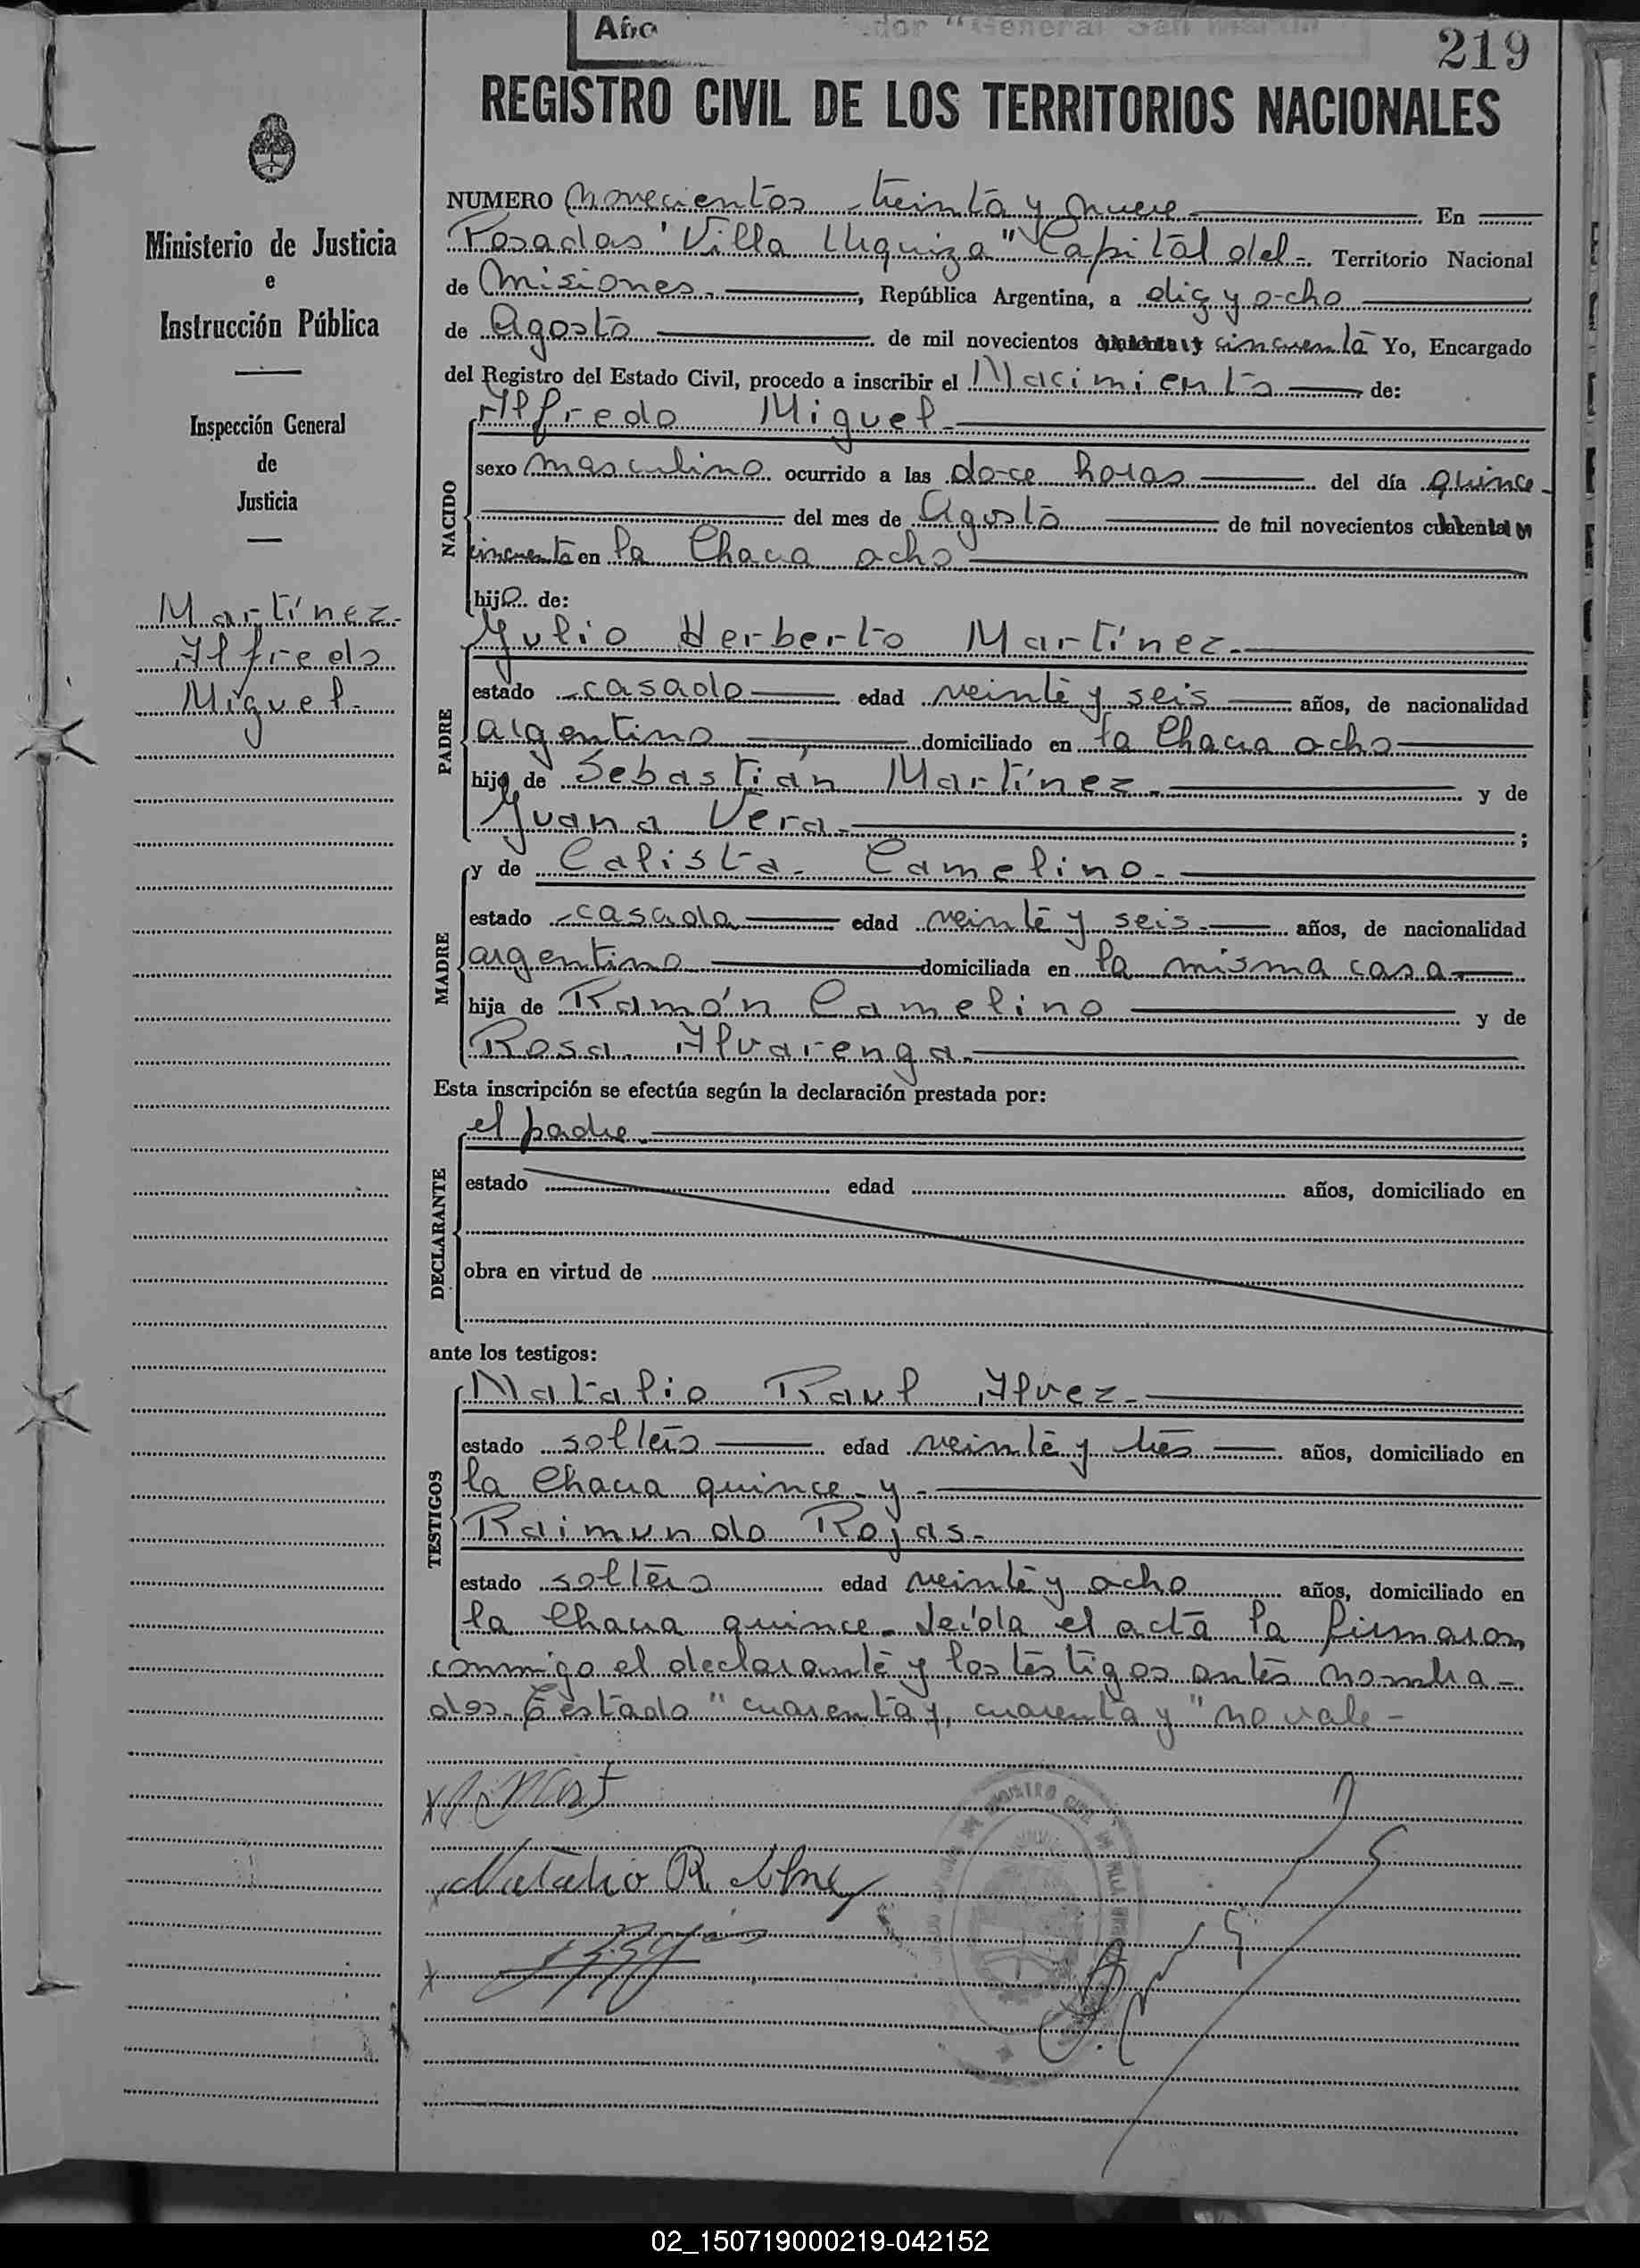 Año
"General San Martín"
219
REGISTRO CIVIL DE LOS TERRITORIOS NACIONALES
Ministerio de Justicia
e
Instrucción Pública
Inspección General
de
Justicia
Martínez
Alfredo
Miguel
NUMERO novecientos treinta y nueve En
Posadas "Villa Urquiza" Capital del Territorio Nacional
de Misiones, República Argentina, a diez y ocho
de Agosto de mil novecientos cincuenta Yo, Encargado
del Registro del Estado Civil, procedo a inscribir el Nacimiento de:
Alfredo Miguel
NACIDO
sexo masculino ocurrido a las doce horas del día quince
del mes de Agosto de mil novecientos cuarenta y
cincuenta en la Chacra ocho
hijo de:
PADRE
Julio Herberto Martínez
estado casado edad veinte y seis años, de nacionalidad
argentino domiciliado en la Chacra ocho
hijo de Sebastián Martínez y de
Juana Vera ;
MADRE
y de Calista Camelino
estado casada edad veinte y seis años, de nacionalidad
argentina domiciliada en la misma casa
hija de Ramón Camelino y de
Rosa Alvarenga
Esta inscripción se efectúa según la declaración prestada por:
DECLARANTE
el padre
estado edad años, domiciliado en
obra en virtud de
ante los testigos:
TESTIGOS
Natalio Raul Alvez
estado soltero edad veinte y tres años, domiciliado en
la Chacra quince y
Raimundo Rojas
estado soltero edad veinte y ocho años, domiciliado en
la Chacra quince. Leída el acta la firmaron
conmigo el declarante y los testigos antes nombra-
dos. Testado "cuarenta y, cuarenta y" no vale
Natalio R. Alvez
02_150719000219-042152